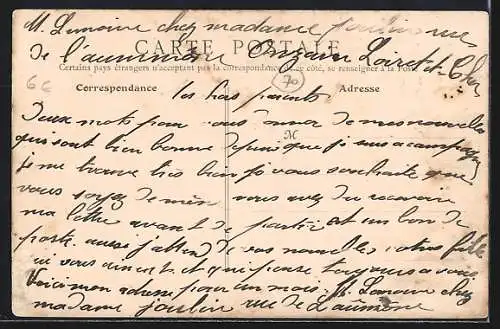 M. Lemoine chez madame joulin rue
de l'aumône Onzain Loir et Cher
CARTE POSTALE
Certains pays étrangers n'acceptant pas la correspondance de ce côté, se renseigner à la Poste
66
70
Correspondance
Adresse
Tes bas parents
M
Deux mots pour vous donner de mes nouvelles
qui sont bien bonne depuis que je suis a campagne
je me trouve très bien je vous souhaite que
vous soyez de même vous avez du recevoir
ma lettre avant de partir et un bon de
poste aussi j'attend de vos nouvelles votre fille
qui vous aiment et qui pense toujours a vous
Voici mon adresse pour un mois M. Lemoine chez
madame joulin rue de L'aumône